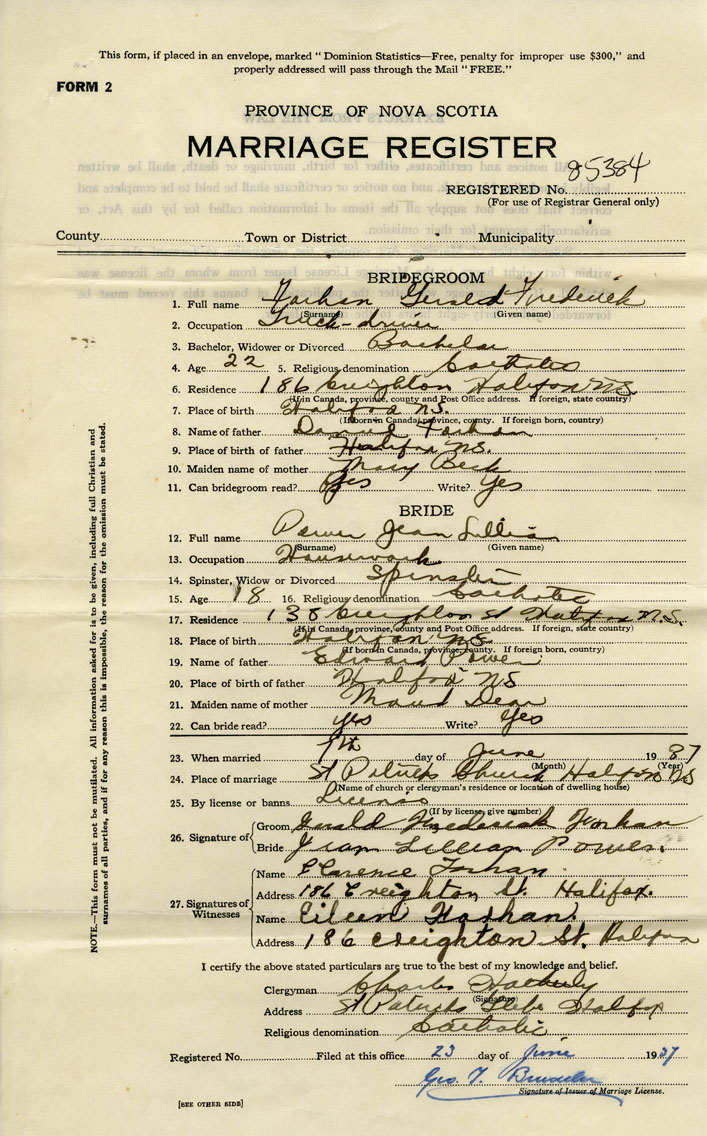 This form, if placed in an envelope, marked "Dominion Statistics—Free, penalty for improper use $300," and
properly addressed will pass through the Mail "FREE."
FORM 2
PROVINCE OF NOVA SCOTIA
MARRIAGE REGISTER
REGISTERED No. 85384
(For use of Registrar General only)
County Town or District Municipality
BRIDEGROOM
1. Full name Forhan Gerald Frederick
(Surname) (Given name)
2. Occupation Truck-driver
3. Bachelor, Widower or Divorced Bachelor
4. Age 22 5. Religious denomination Catholic
6. Residence 186 Creighton Halifax NS
(If in Canada, province, county and Post Office address. If foreign, state country)
7. Place of birth Halifax N.S.
(If born in Canada, province, county. If foreign born, country)
8. Name of father Daniel Forhan
9. Place of birth of father Halifax N.S.
10. Maiden name of mother Mary Beck
11. Can bridegroom read? Yes Write? Yes
BRIDE
12. Full name Power Jean Lillian
(Surname) (Given name)
13. Occupation Housework
14. Spinster, Widow or Divorced Spinster
15. Age 18 16. Religious denomination Catholic
17. Residence 138 Creighton St Halifax N.S.
(If in Canada, province, county and Post Office address. If foreign, state country)
18. Place of birth Halifax N.S.
(If born in Canada, province, county. If foreign born, country)
19. Name of father Edward Power
20. Place of birth of father Halifax NS
21. Maiden name of mother Maud Dear
22. Can bride read? yes Write? Yes
23. When married 9th day of June 1937
(Month) (Year)
24. Place of marriage St Patricks Church Halifax NS
(Name of church or clergyman's residence or location of dwelling house)
25. By license or banns License
(If by license, give number)
26. Signature of
Groom Gerald Frederick Forhan
Bride Jean Lillian Power.
27. Signatures of Witnesses
Name Clarence Forhan.
Address 186 Creighton St. Halifax.
Name Eileen Forhan
Address 186 Creighton St. Halifax
I certify the above stated particulars are true to the best of my knowledge and belief.
Clergyman Charles
(Signature)
Address St Patricks Glebe Halifax
Religious denomination Catholic
Registered No. Filed at this office 23 day of June 1937
Geo. T.
Signature of Issuer of Marriage License.
[SEE OTHER SIDE]
NOTE.—This form must not be mutilated. All information asked for is to be given, including full Christian and
surnames of all parties, and if for any reason this is impossible, the reason for the omission must be stated.